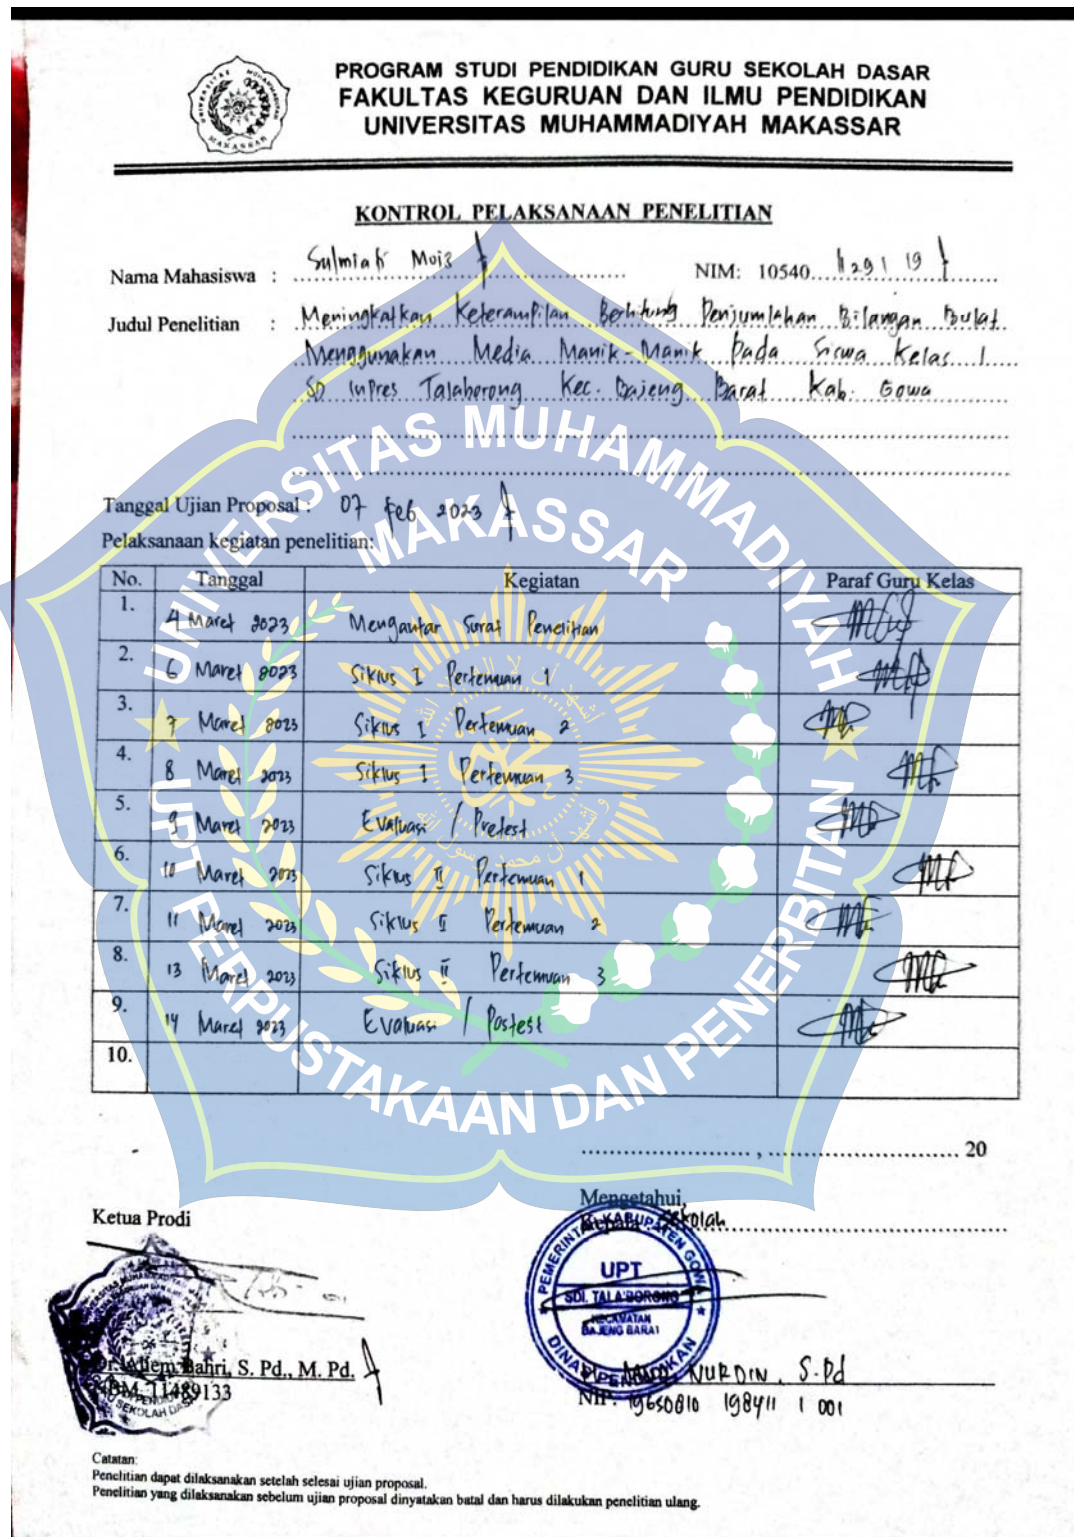 PROGRAM STUDI PENDIDIKAN GURU SEKOLAH DASAR
FAKULTAS KEGURUAN DAN ILMU PENDIDIKAN
UNIVERSITAS MUHAMMADIYAH MAKASSAR
KONTROL PELAKSANAAN PENELITIAN
Nama Mahasiswa : Sulmiati Mois NIM: 10540 11291 19
Judul Penelitian : Meningkatkan Keterampilan Berhitung Penjumlahan Bilangan Bulat
Menggunakan Media Manik-Manik Pada Siswa Kelas 1
SD Inpres Talaborong Kec. Bajeng Barat Kab. Gowa
Tanggal Ujian Proposal : 07 Feb 2023
Pelaksanaan kegiatan penelitian:
No. Tanggal Kegiatan Paraf Guru Kelas
1. 4 Maret 2023 Mengantar Surat Penelitian
2. 6 Maret 2023 Siklus I Pertemuan 1
3. 7 Maret 2023 Siklus I Pertemuan 2
4. 8 Maret 2023 Siklus I Pertemuan 3
5. 9 Maret 2023 Evaluasi / Pretest
6. 10 Maret 2023 Siklus II Pertemuan 1
7. 11 Maret 2023 Siklus II Pertemuan 2
8. 13 Maret 2023 Siklus II Pertemuan 3
9. 14 Maret 2023 Evaluasi / Postest
10.
UNIVERSITAS MUHAMMADIYAH
MAKASSAR
UPT PERPUSTAKAAN DAN PENERBITAN
.........................., .............................. 20
Mengetahui,
Kepala Sekolah
Ketua Prodi
PEMERINTAH KABUPATEN GOWA
UPT
SDI. TALA'BORONG
KECAMATAN
BAJENG BARAT
DINAS PENDIDIKAN
Dr. Aliem Bahri, S. Pd., M. Pd.
NBM. 11489133
NURDIN, S.Pd
NIP. 19650810 198411 1 001
Catatan:
Penelitian dapat dilaksanakan setelah selesai ujian proposal.
Penelitian yang dilaksanakan sebelum ujian proposal dinyatakan batal dan harus dilakukan penelitian ulang.